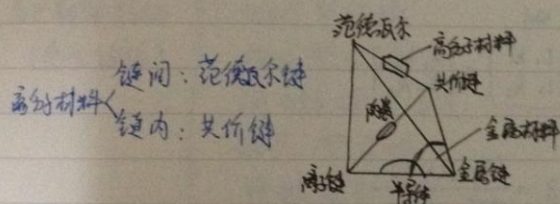 高分子材料
链间：范德瓦尔键
链内：共价键
范德瓦尔
高分子材料
共价键
陶瓷
金属材料
离子键
半导体
金属键